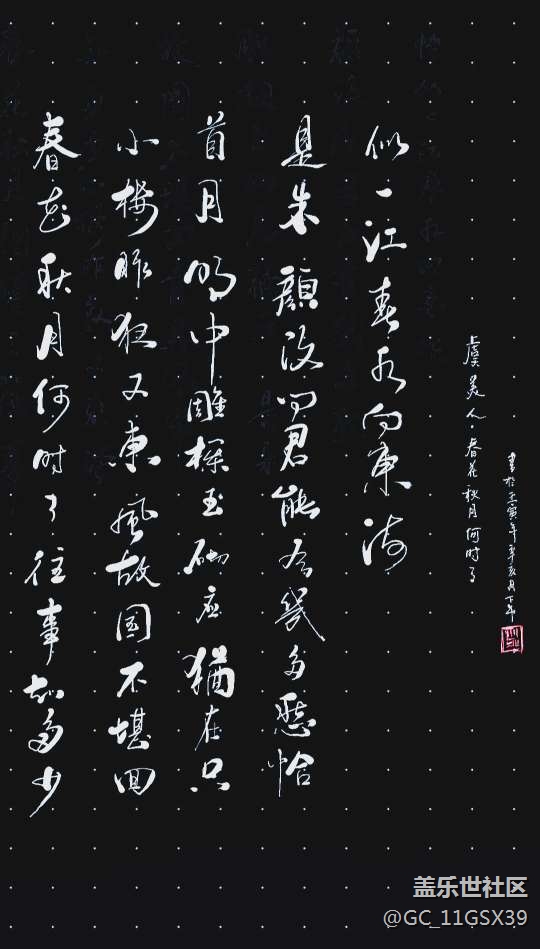 春花秋月何时了往事知多少
小楼昨夜又東風故国不堪回
首月明中雕栏玉砌应猶在只
是朱顔改问君能有幾多愁恰
似一江春水向東流
虞美人·春花秋月何时了
書於壬寅年辛亥月下午
盖乐世社区
@GC_11GSX39